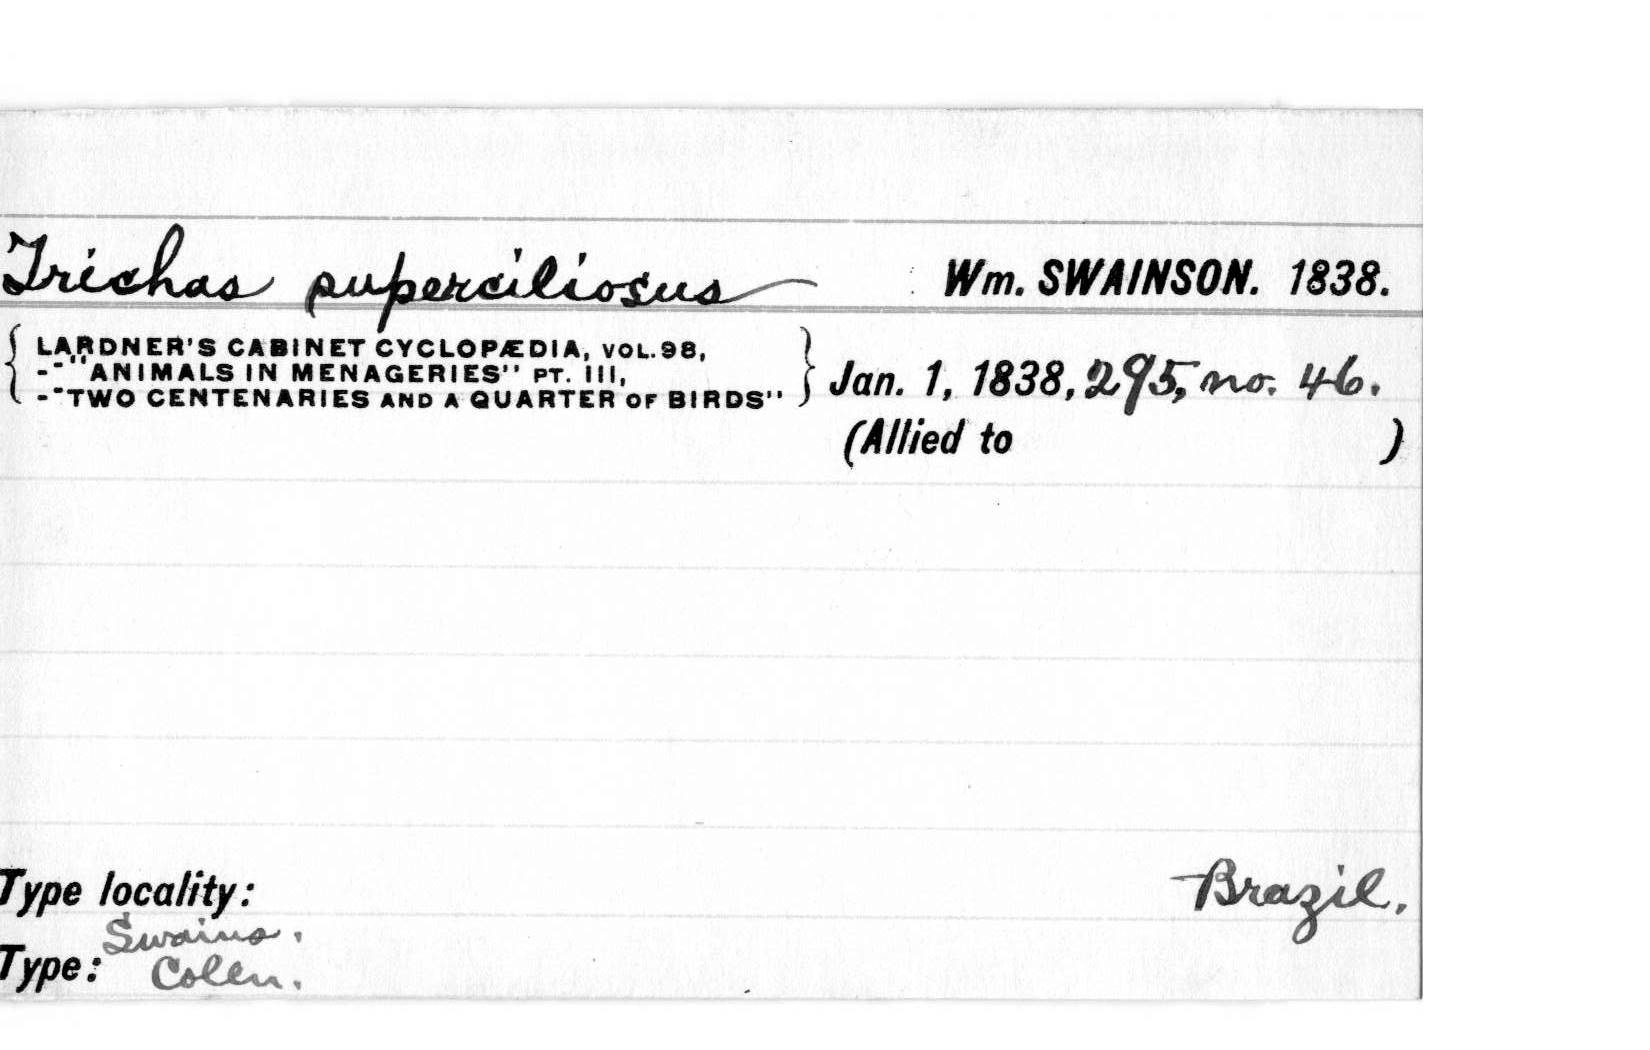 Trichas superciliosus Wm. SWAINSON. 1838.
LARDNER'S CABINET CYCLOPÆDIA, VOL.98,
-"-"ANIMALS IN MENAGERIES" PT. III,
-"TWO CENTENARIES AND A QUARTER OF BIRDS"
Jan. 1, 1838, 295, no. 46.
(Allied to )
Type locality: Brazil.
Swains.
Type: Colln.